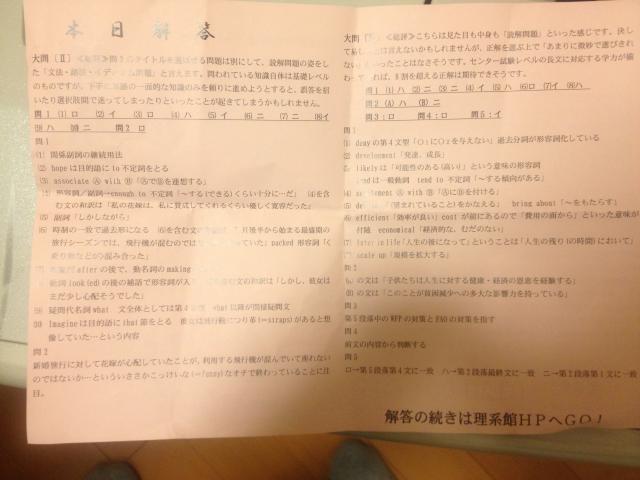 本日解答
大問〔Ⅱ〕≪総評≫問2のタイトルを選ばせる問題は別にして、読解問題の姿をし
た「文法・語法・イディオム問題」と言えます。問われている知識自体は基礎レベル
のものですが、下手に英語の一面的な知識のみを頼りに進めようとすると、誤答を招
いたり選択肢間で迷ってしまったりといったことが起きてしまうかもしれません。
問1 (1)ロ (2)イ (3)ロ (4)ハ (5)イ (6)ニ (7)ニ (8)イ
(9)ハ (10)ニ 問2 ロ
問1
(1) 関係副詞の継続用法
(2) hopeは目的語に to不定詞をとる
(3) associate Ⓐ with Ⓑ「ⒶでⒷを連想する」
(4) 形容詞／副詞+enough to 不定詞「～する(できる)くらい十分に…だ」 (4)を含
む文の和訳は「私の花嫁は、私に賛成してくれるくらい優しく寛容だった」
(5) 副詞「しかしながら」
(6) 時制の一致で過去形になる (6)を含む文の
旅行シーズンでは、飛行機が混むのでは packed 形容詞「(
乗り物などが)混み合った」
(7) after の後で、動名詞の making
(8) 動詞 look(ed)の後の補語で形容詞が入る 文の和訳は「しかし、彼女は
まだ少し心配そうでした」
(9) 疑問代名詞what 文全体としては第4文型 what以降が間接疑問文
(10) Imagineは目的語にthat節をとる 彼女は飛行機につり革(=straps)があると想
像していた…という内容
問2
新婚旅行に対して花嫁が心配していたことが、利用する飛行機が混んでいて座れない
のではないか…といういささかこっけいな(=funny)なオチで終わっていることに注
目。
大問 ≪総評≫こちらは見た目も中身も「読解問題」といった感じです。決し
て易しいとは言えないかもしれませんが、正解を選ぶ上で「あまりに微妙で選びきれ
ない」といったことはなさそうです。センター試験レベルの長文に対応する学力が備
わっていれば、8割を超える正解は期待できそうです。
問1 (1)ハ (2)ニ (3)ハ (4)ロ (5)ロ (6)ロ (7)イ (8)ハ
問2 (A)ハ (B)ニ
問3：ロ 問4：ロ 問5：イ
問1
(1) denyの第4文型「O₁にO₂を与えない」過去分詞が形容詞化している
(2) development「発達、成長」
(3) likelyは「可能性のある(高い)」という意味の形容詞
tendは一般動詞 tend to 不定詞「～する傾向がある」
(4) Ⓐ with Ⓑ「ⒶにⒷを付ける」
(5) 「望まれていること)をかなえる」 bring about「～をもたらす」
(6) efficient「効率が良い」costが前にあるので「費用の面から」といった意味が
付随 economical「経済的な、むだのない」
(7) later in life「人生の後になって」ということは「人生の残り(の時間)において」
(8) scale up「規模を拡大する」
問2
の文は「子供たちは人生に対する健康・経済の恩恵を経験する」
(B)の文は「このことが貧困減少への多大な影響力を持っている」
問3
第5段落中のWFPの対策とFAOの対策を指す
問4
前文の内容から判断する
問5
ロ→第5段落第4文に一致 ハ→第2段落最終文に一致 ニ→第2段落第1文に一致
解答の続きは理系館HPへGO！